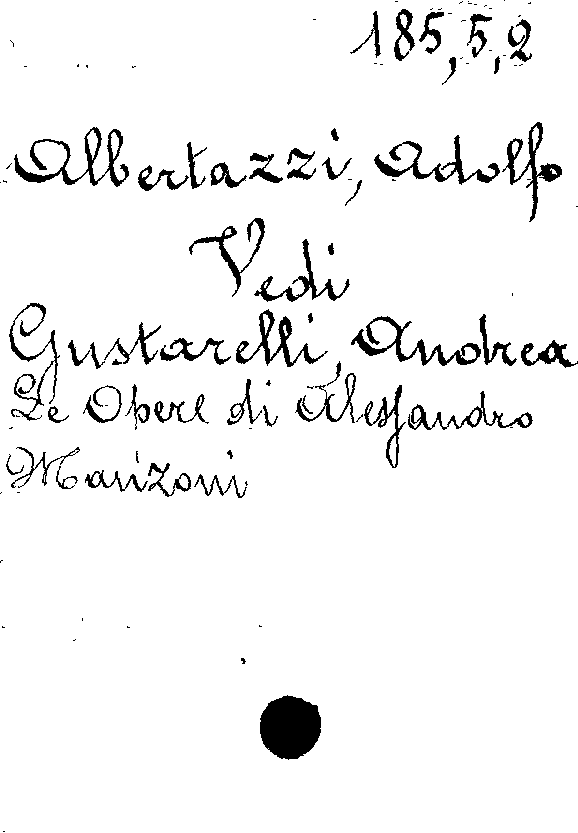 185,5,2
Albertazzi, Adolfo
Vedi
Gustarelli, Andrea
Le Opere di Alessandro
Manzoni